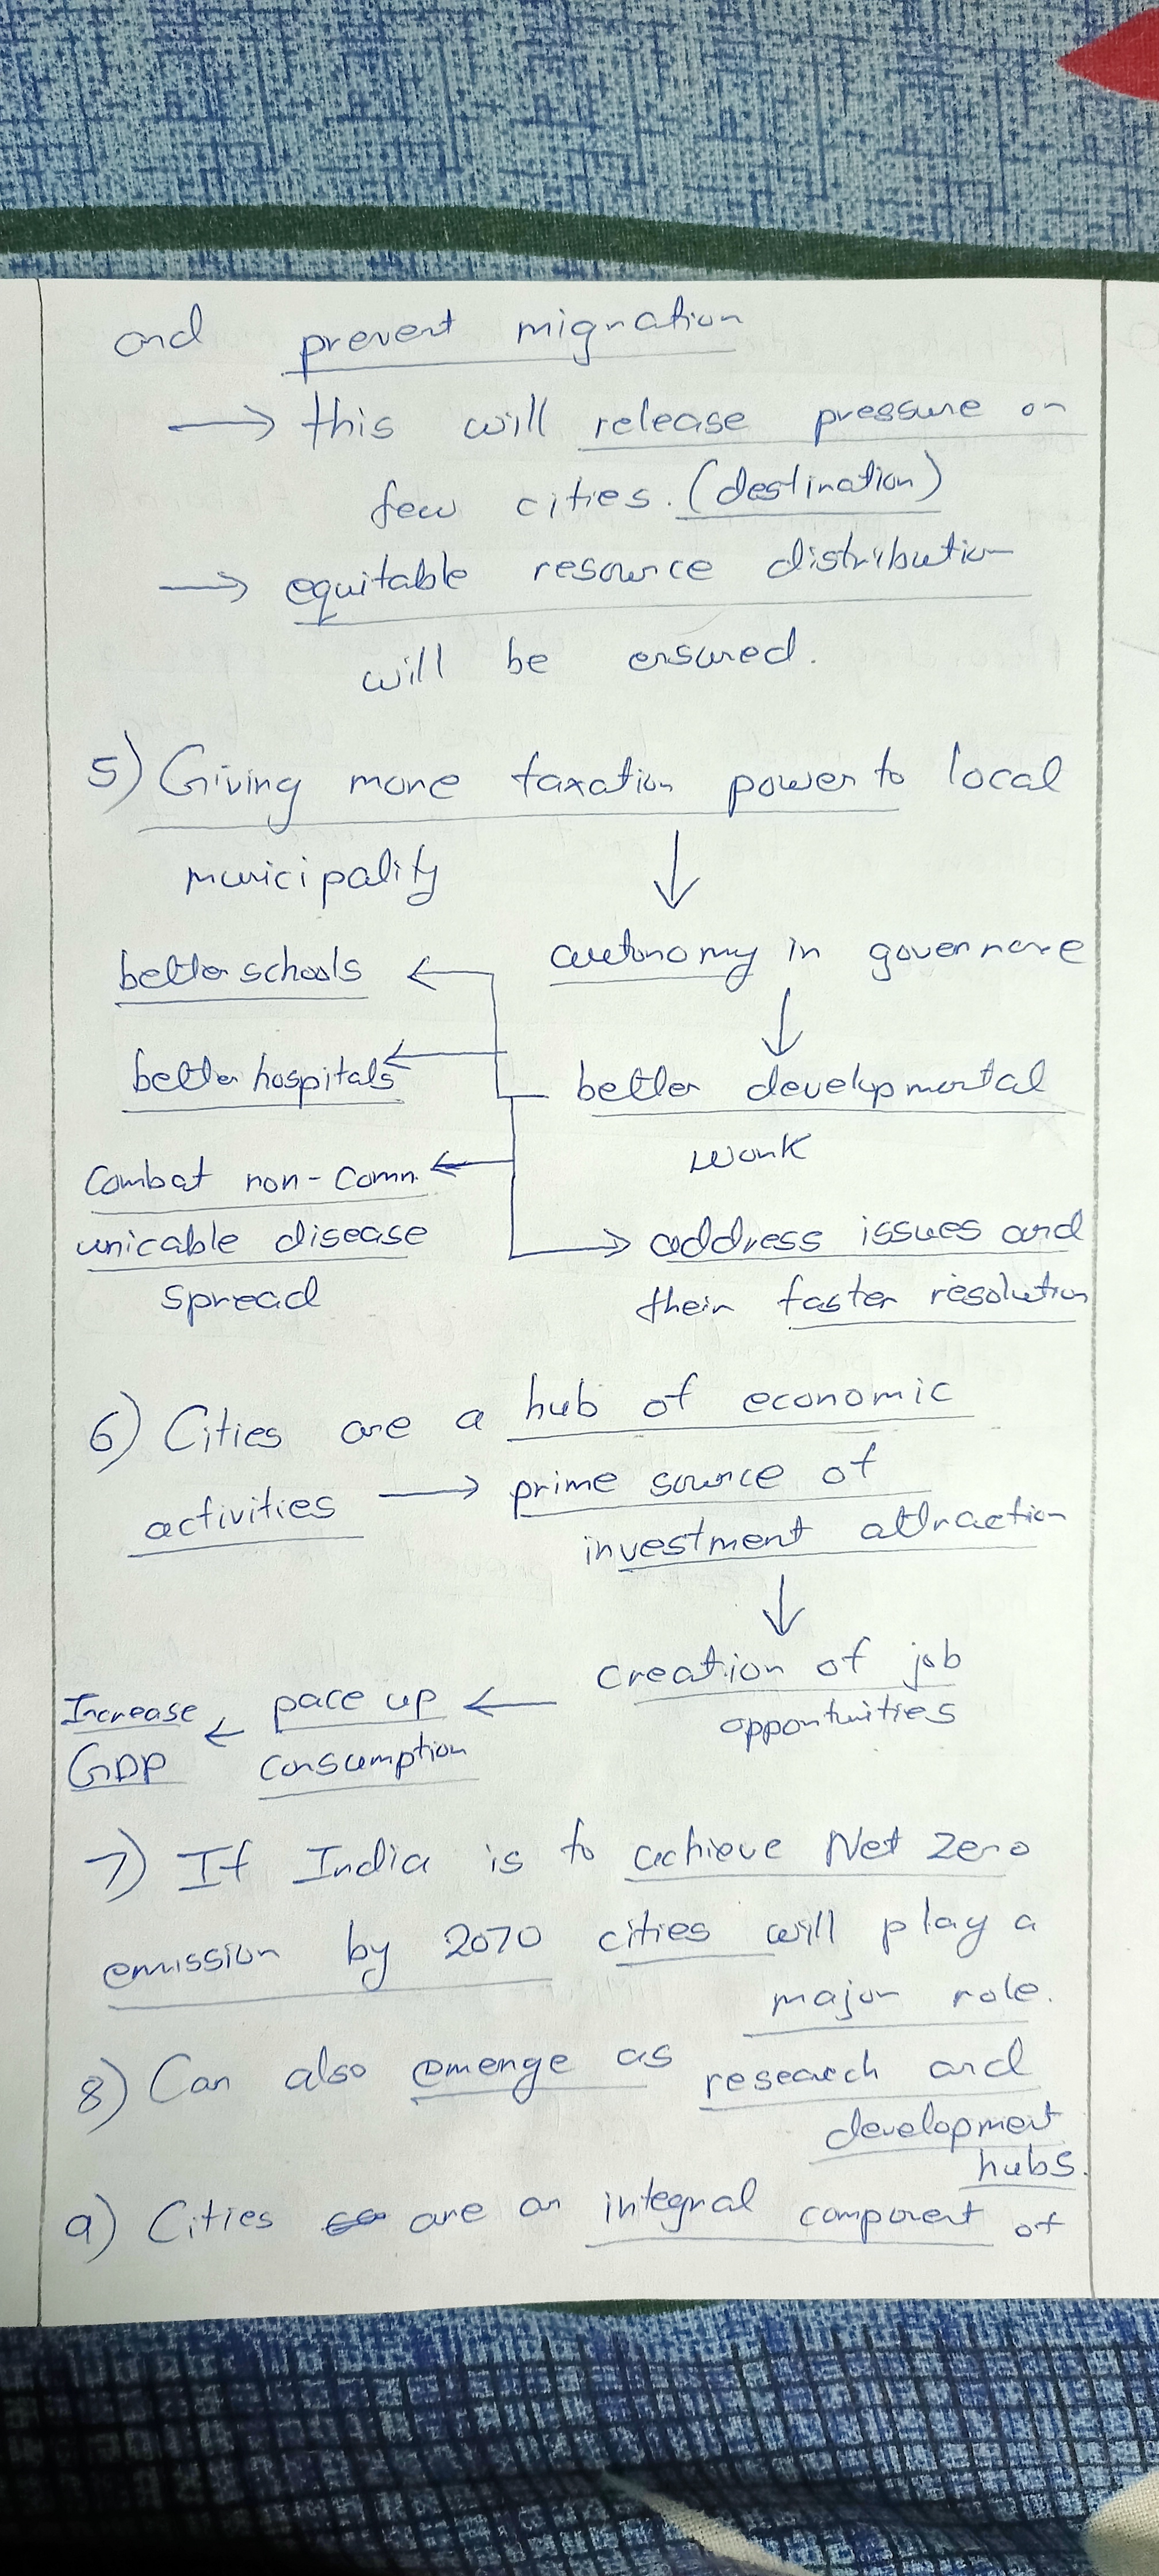 and prevent migration
→ this will release pressure on
few cities. (destination)
→ equitable resource distribution
will be ensured.
5) Giving more taxation power to local
municipality
↓
autonomy in governance
↓
better developmental
work
better schools ←
better hospitals ←
Combat non-comm ←
unicable disease
spread
→ address issues and
their faster resolution
6) Cities are a hub of economic
activities → prime source of
investment attraction
↓
creation of job
opportunities
← pace up
consumption
← Increase
GDP
7) If India is to achieve Net zero
emission by 2070 cities will play a
major role.
8) Can also emerge as research and
development
hubs.
9) Cities are an integral component of